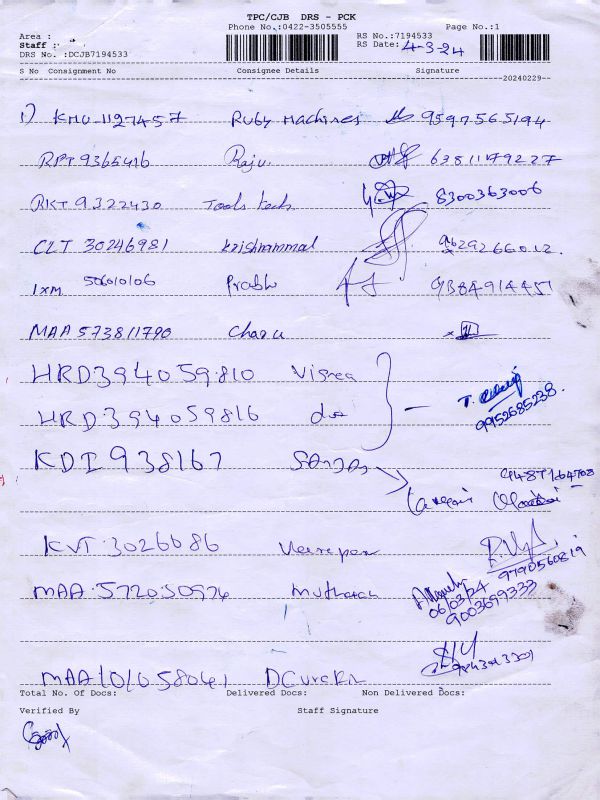 TPC/CJB DRS - PCK
Phone No.:0422-3505555 Page No.:1
Area :
Staff :
RS No.:7194533
DRS No. :DCJB7194533 RS Date: 4-3-24
S No Consignment No Consignee Details Signature
20240229
1) KMU 1127457 Ruby machines 9597565194
RPT 9365416 Raju 6381179227
RKT 9322430 Tools tech 8300363006
CLT 30246981 Krishnammal 9629266012
IXM 506010106 Prabhu 9384914457
MAA 573811790 Charu
HRD394059810 Vignea
HRD394059816 do
T.
9952685238
KDI 938167
9487164708
KVT.3026686 Veerapan
9790560819
MAA.572050974 Muthaiah
06/03/24
9003699333
MAA101058041
Total No. Of Docs: Delivered Docs: Non Delivered Docs:
Verified By Staff Signature